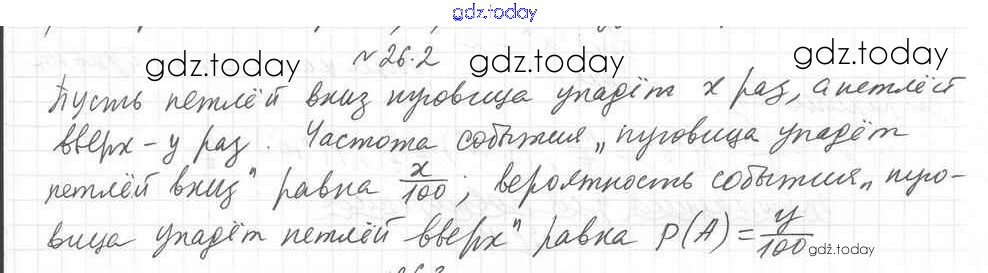 gdz.today
№ 26.2
gdz.today gdz.today gdz.today
Пусть петлёй вниз пуговица упадёт x раз, а петлёй
вверх - y раз. Частота события „пуговица упадёт
петлёй вниз" равна x/100; вероятность события „пуго-
вица упадёт петлёй вверх" равна P(A)=y/100
gdz.today